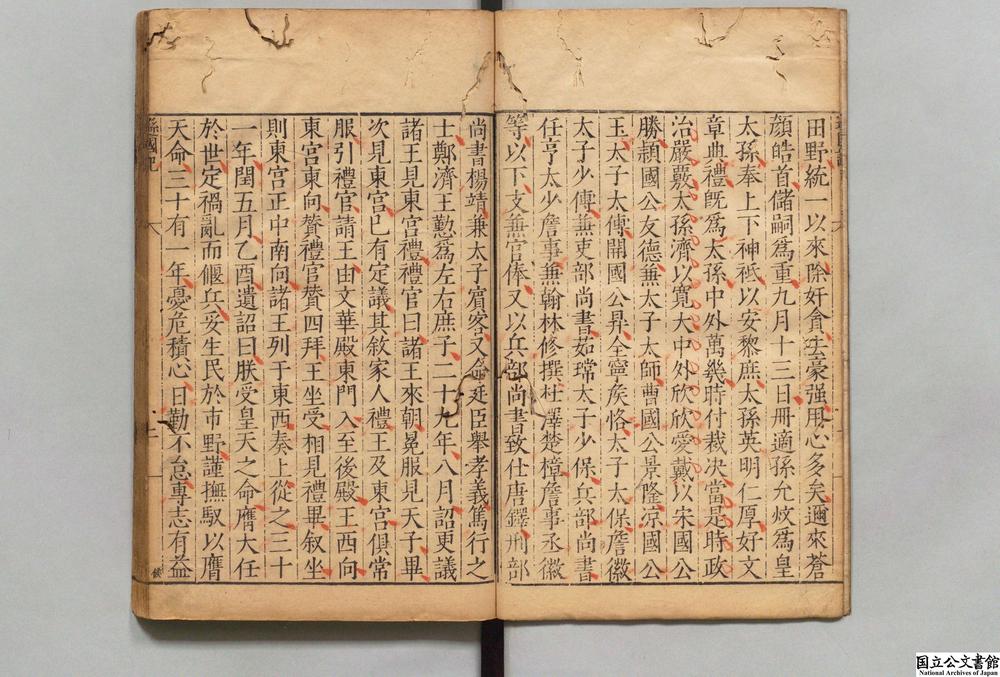 田野統一以來除奸貪去豪强用心多矣邇來蒼
顔皓首儲嗣爲重九月十三日冊適孫允炆爲皇
太孫奉上下神祗以安黎庶太孫英明仁厚好文
章典禮旣爲太孫中外萬幾時付裁决當是時政
治嚴覈太孫濟以寬大中外欣欣愛戴以宋國公
勝頴國公友德兼太子太師曹國公景隆凉國公
玉太子太傅開國公昇全寧矦恪太子太保詹徽
太子少傅兼吏部尚書茹瑺太子少保兵部尚書
任亨太少詹事兼翰林修撰杜澤楚樟詹事丞徽
等以下支兼官俸又以兵部尚書致仕唐鐸刑部
尚書楊靖兼太子賓客又命廷臣舉孝義篤行之
士鄭濟王懃爲左右庶子二十九年八月詔更議
諸王見東宮禮禮官曰諸王來朝冕服見天子畢
次見東宮已有定議其敘家人禮王及東宮俱常
服引禮官請王由文華殿東門入至後殿王西向
東宮東向贊禮官贊四拜王坐受相見禮畢叙坐
則東宮正中南向諸王列于東西奏上從之三十
一年閏五月乙酉遺詔曰朕受皇天之命膺大任
於世定禍亂而偃兵妥生民於市野謹撫馭以膺
天命三十有一年憂危積心日勤不怠專志有益
遜國記
国立公文書館
National Archives of Japan